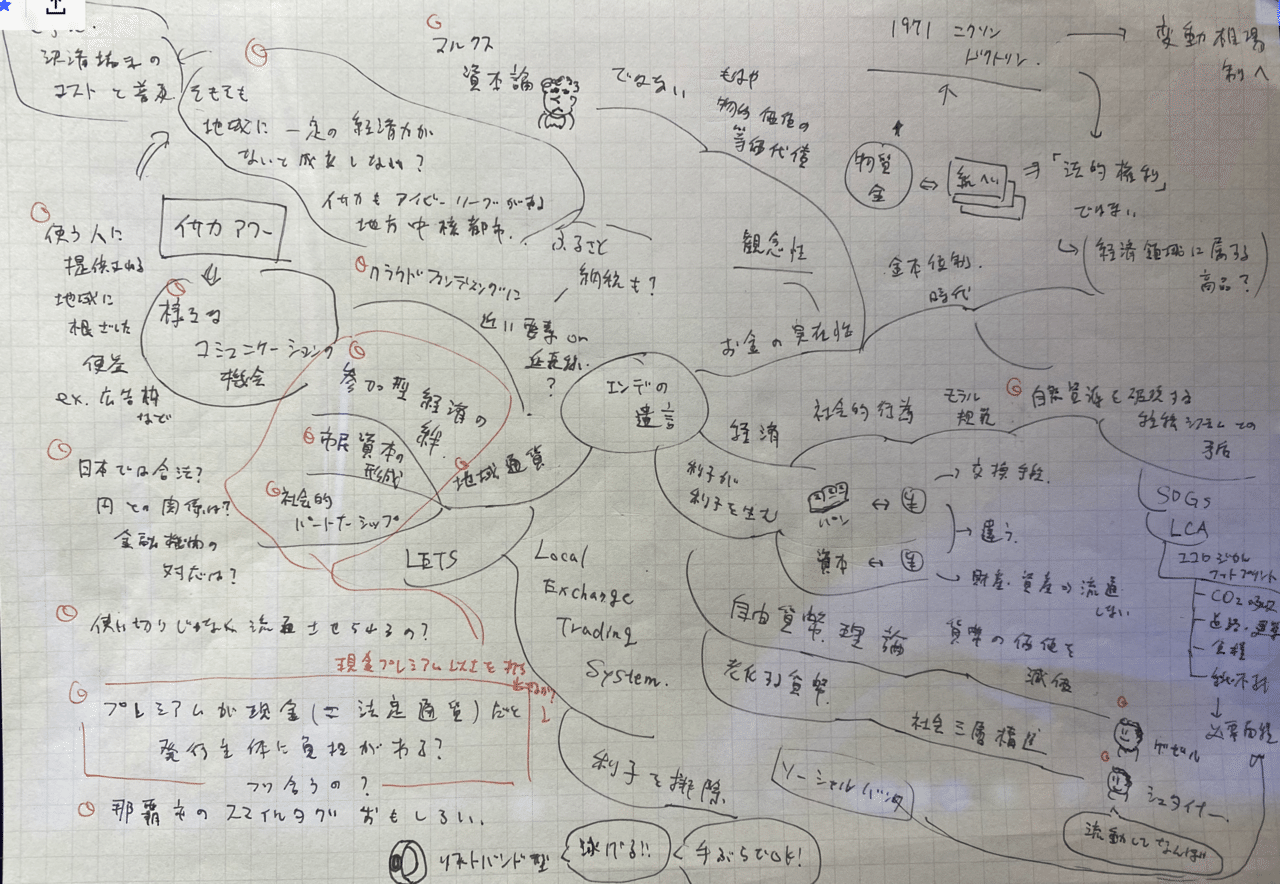 決済端末の
コストと普及
そもそも
地域に一定の経済力が
ないと成立しない?
イサカもアイビーリーグがある
地方中核都市.
マルクス
資本論
ではない
もはや
物的価値の
等価代償
1971 ニクソン
ドクトリン.
変動相場
制へ
物質
金
紙ペい
「法的権利」
ではない
経済領域に属する
商品?
観念性
金本位制.
時代
お金の実在性
ふるさと
納税も?
クラウドファンディングに
近い要素 or
延長線.
?
使う人に
提供される
地域に
根ざした
便益
ex. 広告枠
など
イサカ アワー
様々な
コミュニケーションの
機会
参加型経済の
絆.
市民資本の
形成
社会的
パートナーシップ
地域通貨
エンデの
遺言
経済
社会的行為
モラル
規範
自然資源を破壊する
経絡システムとの
矛盾
利子が
利子を生む
パン
交換手段.
資本
違う.
財産・資産の流通
しない
SDGs
LCA
エコロジカル
フットプリント
CO2
食糧
日本では合法?
円との関係は?
金融機関の
対応は?
LETS
Local
Exchange
Trading
System.
自由貨幣理論
貨幣の価値を
減価
老化する貨幣
社会三層構造
ゲゼル
シュタイナー.
流動してなんぼ
ソーシャルバンク
利子を排除
使い切りじゃなく流通させられるの?
現金プレミアム以上を
プレミアムが現金(=法定通貨)だと
発行主体に負担がある?
つり合うの?
那覇市のスマイルタグおもしろい.
リストバンド型
泳げる!!
手ぶらでOK!